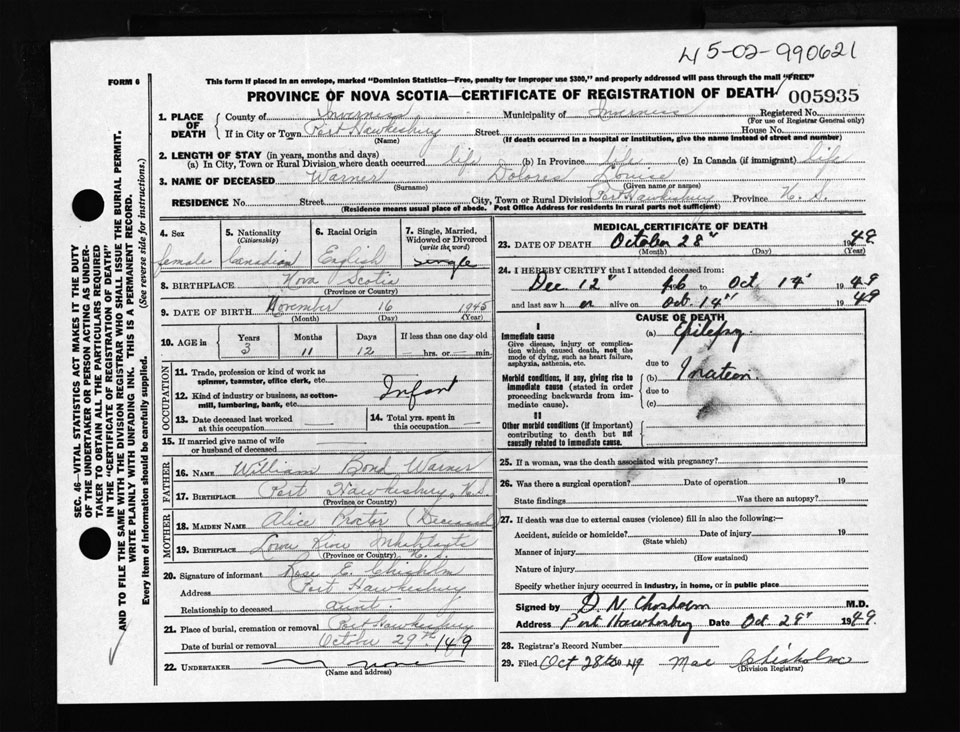 45-02-990621
FORM 6
This form if placed in an envelope, marked "Dominion Statistics—Free, penalty for improper use $300," and properly addressed will pass through the mail "FREE"
PROVINCE OF NOVA SCOTIA—CERTIFICATE OF REGISTRATION OF DEATH 005935
1. PLACE OF DEATH
County of Inverness Municipality of Inverness Registered No.
(For use of Registrar General only)
If in City or Town Port Hawkesbury Street House No.
(Name) (If death occurred in a hospital or institution, give the name instead of street and number)
2. LENGTH OF STAY (in years, months and days)
(a) In City, Town or Rural Division where death occurred life (b) In Province life (c) In Canada (if immigrant) life
3. NAME OF DECEASED Warner Dolores Louise
(Surname) (Given name or names)
RESIDENCE No. Street City, Town or Rural Division Port Hawkesbury Province N.S.
(Residence means usual place of abode. Post Office Address for residents in rural parts not sufficient)
SEC. 46—VITAL STATISTICS ACT MAKES IT THE DUTY
OF THE UNDERTAKER OR PERSON ACTING AS UNDER-
TAKER TO OBTAIN ALL THE PARTICULARS REQUIRED
IN THE "CERTIFICATE OF REGISTRATION OF DEATH"
AND TO FILE THE SAME WITH THE DIVISION REGISTRAR WHO SHALL ISSUE THE BURIAL PERMIT.
WRITE PLAINLY WITH UNFADING INK. THIS IS A PERMANENT RECORD.
Every item of information should be carefully supplied. (See reverse side for instructions.)
4. Sex 5. Nationality (Citizenship) 6. Racial Origin 7. Single, Married, Widowed or Divorced (write the word)
female Canadian English Single
8. BIRTHPLACE Nova Scotia
(Province or Country)
9. DATE OF BIRTH November 16 1945
(Month) (Day) (Year)
10. AGE in Years Months Days If less than one day old
3 11 12 hrs. or min.
OCCUPATION
11. Trade, profession or kind of work as
spinner, teamster, office clerk, etc.
12. Kind of industry or business, as cotton-
mill, lumbering, bank, etc. Infant
13. Date deceased last worked
at this occupation
14. Total yrs. spent in
this occupation
15. If married give name of wife
or husband of deceased
FATHER
16. NAME William Bond Warner
17. BIRTHPLACE Port Hawkesbury, N.S.
(Province or Country)
MOTHER
18. MAIDEN NAME Alice Proctor (Deceased
19. BIRTHPLACE Inhabitants N.S.
(Province or Country)
20. Signature of informant Rose E. Chisholm
Address Port Hawkesbury
Relationship to deceased aunt.
21. Place of burial, cremation or removal Port Hawkesbury
Date of burial or removal October 29th 1949
22. UNDERTAKER none
(Name and address)
MEDICAL CERTIFICATE OF DEATH
23. DATE OF DEATH October 28" 1949
(Month) (Day) (Year)
24. I HEREBY CERTIFY that I attended deceased from:
Dec. 12" to Oct. 14" 1949
and last saw h er alive on Oct. 14" 1949
CAUSE OF DEATH
I
Immediate cause
Give disease, injury or complica-
tion which caused death, not the
mode of dying, such as heart failure,
asphyxia, asthenia, etc.
(a) Epilepsy
due to
Morbid conditions, if any, giving rise to
immediate cause (stated in order
proceeding backwards from im-
mediate cause).
(b)
due to
(c)
II
Other morbid conditions (if important)
contributing to death but not
causally related to immediate cause.
25. If a woman, was the death associated with pregnancy?
26. Was there a surgical operation? Date of operation 19
State findings Was there an autopsy?
27. If death was due to external causes (violence) fill in also the following:—
Accident, suicide or homicide? Date of injury 19
(State which)
Manner of injury
(How sustained)
Nature of injury
Specify whether injury occurred in industry, in home, or in public place
Signed by D. N. Chisholm M.D.
Address Port Hawkesbury Date Oct 29" 1949
28. Registrar's Record Number
29. Filed Oct 28th 49 Mae Chisholm
(Division Registrar)